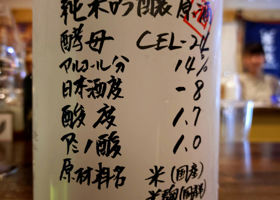 純米吟醸原酒
酵母 CEL-24
アルコール分 14%
日本酒度 -8
酸度 1.7
アミノ酸 1.0
原材料名 米(国産)
米麹(国産米)